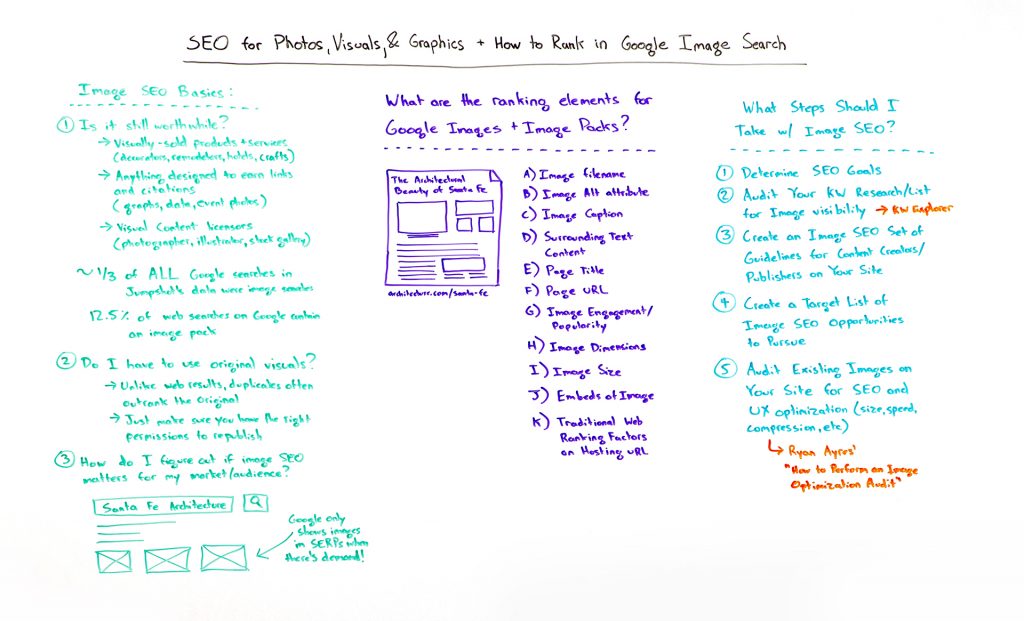 SEO for Photos, Visuals, & Graphics + How to Rank in Google Image Search
Image SEO Basics:
① Is it still worthwhile?
→ Visually-sold products + services
(decorators, remodelers, hotels, crafts)
→ Anything designed to earn links
and citations
(graphs, data, event photos)
→ Visual Content licensors
(photographer, illustrator, stock gallery)
~1/3 of ALL Google searches in
Jumpshot's data were image searches
12.5% of web searches on Google contain
an image pack
② Do I have to use original visuals?
→ Unlike web results, duplicates often
outrank the original
→ Just make sure you have the right
permissions to republish
③ How do I figure out if image SEO
matters for my market/audience?
Santa Fe Architecture
Google only
shows images
in SERPs when
there's demand!
What are the ranking elements for
Google Images + Image Packs?
The Architectural
Beauty of Santa Fe
architecture.com/santa-fe
A) Image filename
B) Image Alt attribute
C) Image Caption
D) Surrounding Text
Content
E) Page Title
F) Page URL
G) Image Engagement/
Popularity
H) Image Dimensions
I) Image Size
J) Embeds of Image
K) Traditional Web
Ranking Factors
on Hosting URL
What Steps Should I
Take w/ Image SEO?
① Determine SEO Goals
② Audit Your KW Research/List
for Image visibility → KW Explorer
③ Create an Image SEO Set of
Guidelines for Content Creators/
Publishers on Your Site
④ Create a Target List of
Image SEO Opportunities
to Pursue
⑤ Audit Existing Images on
Your Site for SEO and
UX optimization (size, speed,
compression, etc)
Ryan Ayres'
"How to Perform an Image
Optimization Audit"